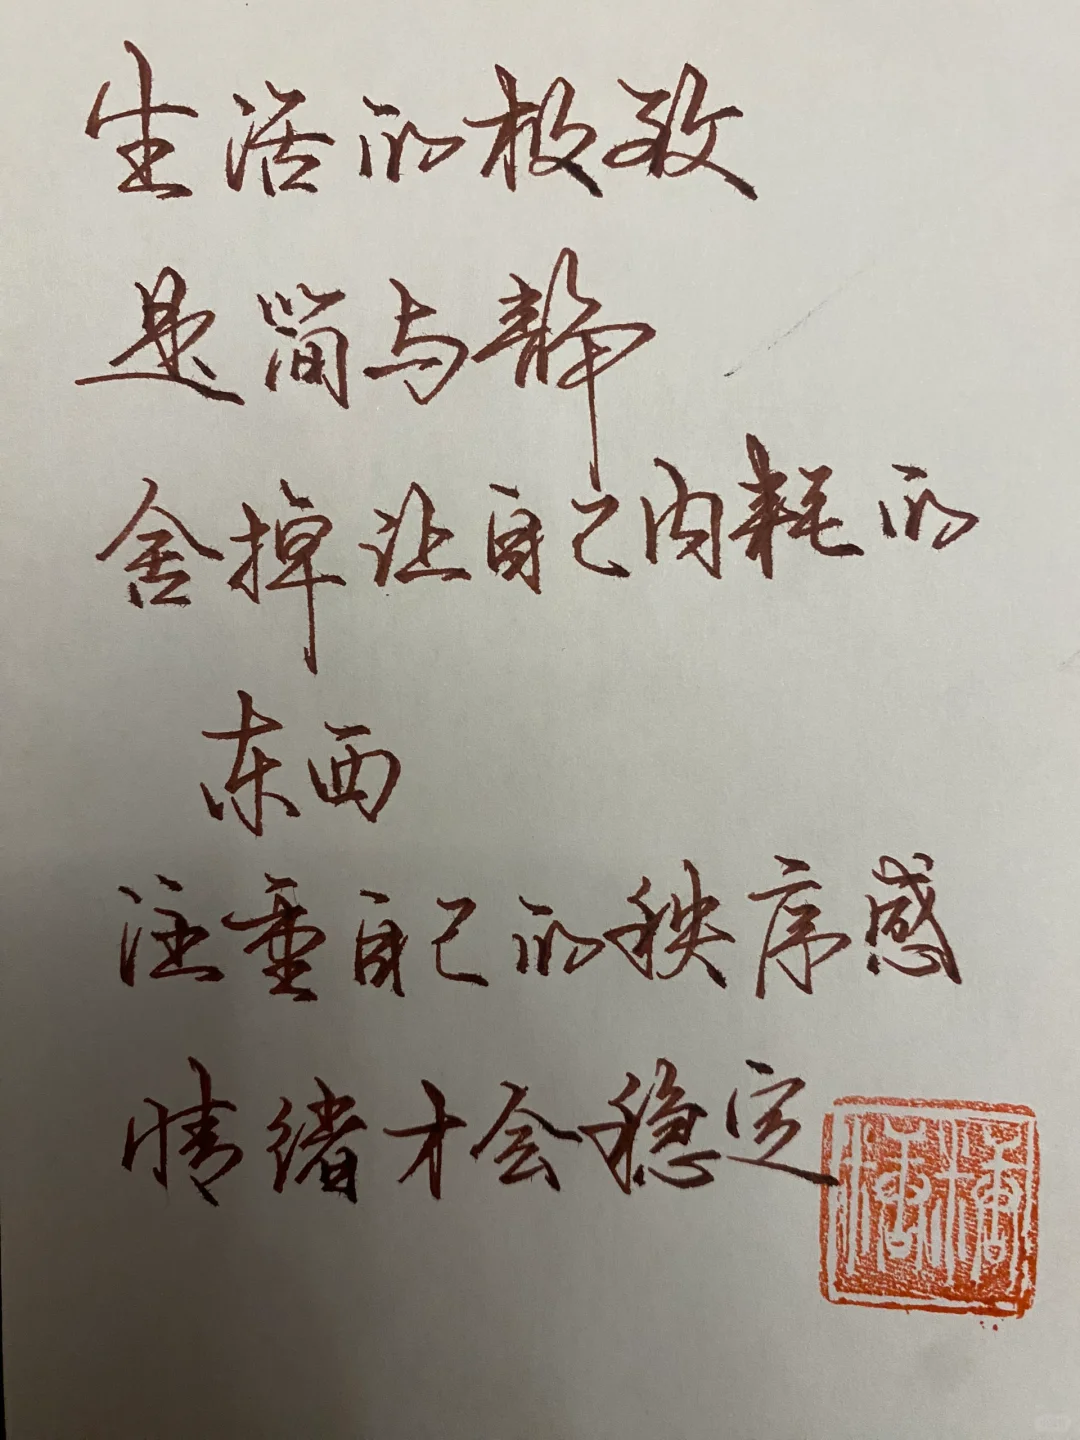 生活的极致
是简与静
舍掉让自己内耗的
东西
注重自己的秩序感
情绪才会稳定